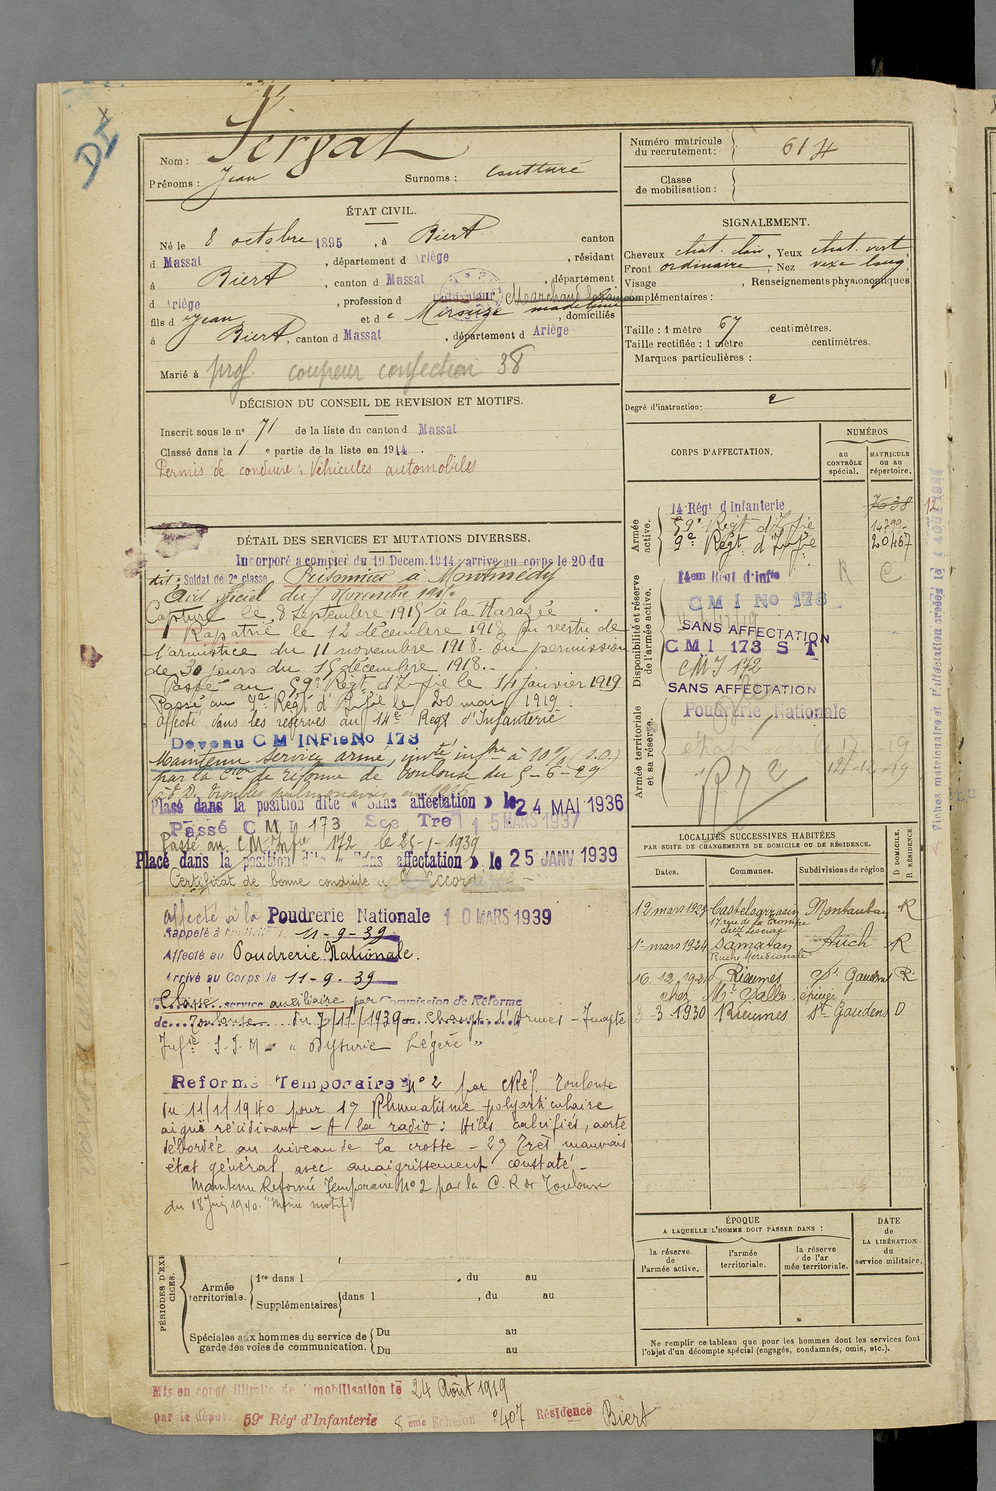 Nom : Servat
Prénoms : Jean Surnoms :
ÉTAT CIVIL.
Né le 8 octobre 1895, à Biert canton
d Massat, département d Ariège, résidant
à Biert, canton d Massat, département
d Ariège, profession d cultivateur Marchand
fils d Jean et de Mirouze Madeleine, domiciliés
à Biert, canton d Massat, département d Ariège
Marié à prof. coupeur confection 38
DÉCISION DU CONSEIL DE REVISION ET MOTIFS.
Inscrit sous le n° 71 de la liste du canton d Massat
Classé dans la 1 e partie de la liste en 1914.
Permis de conduire : Véhicules automobiles
DÉTAIL DES SERVICES ET MUTATIONS DIVERSES.
Incorporé a compter du 19 Decem. 1914 ; arrive au corps le 20 du
dit. Soldat de 2e classe Prisonnier à Montmédy
Avis officiel du 7 Novembre 1915
Capturé le 8 septembre 1915 à la Harazée
Rapatrié le 12 décembre 1918 en vertu de
l'armistice du 11 novembre 1918. En permission
de 30 jours du 15 décembre 1918.
Passé au 59e Régt d'Infie le 14 janvier 1919
Passé au 9e Régt d'Infie le 20 mai 1919.
Affecté dans les réserves au 14e Régt d'Infanterie
Devenu C M INFie No 173
Maintenu service armé, invté infre à 10% (S.O.)
par la Cion de réforme de Toulouse du 5-6-29
troubles pulmonaires
Placé dans la position dite « Sans affectation » le 24 MAI 1936
Passé C M I 173 Sce Tre 15 MARS 1937
Passé au C M Infie 172 le 25-1-1939
Placé dans la position dite « Sans affectation » le 25 JANV 1939
Certificat de bonne conduite Accordé
Affecté à la Poudrerie Nationale 10 MARS 1939
Rappelé à 11-9-39
Affecté au Poudrerie Nationale.
Arrivé au Corps le 11-9-39
Classé service auxiliaire par Commission de Réforme
de Toulouse du 7/11/1939 d'Armes - Inapte
Infie S.I.M - " Dysurie Légère "
Reforme Temporaire N° 2 par cRéf. Toulouse
du 11/1/1940 pour 1) Rhumatisme polyarticulaire
aiguë récidivant - A la radio : Hiles calcifiés, aorte
débordée au niveau de la crosse - 2) Très mauvais
état général avec amaigrissement constaté -
Maintenu Réformé Temporaire N° 2 par la C. R de Toulouse
du 18 Juin 1940. "Même motif"
PÉRIODES D'EXERCICES.
Armée territoriale. 1re dans l , du au
Supplémentaires dans l , du au
Spéciales aux hommes du service de garde des voies de communication. Du au
Du au
Mis en congé illimité de démobilisation le 24 Août 1919
par le dépot 59e Régt d'Infanterie 8 eme Echelon °407 Résidence Biert
Numéro matricule du recrutement : 614
Classe de mobilisation :
SIGNALEMENT.
Cheveux chat. clair, Yeux chat. vert
Front ordinaire, Nez vexe long
Visage , Renseignements physionomiques
complémentaires :
Taille : 1 mètre 67 centimètres.
Taille rectifiée : 1 mètre centimètres.
Marques particulières :
Degré d'instruction : 2
CORPS D'AFFECTATION. NUMÉROS
au CONTRÔLE spécial. MATRICULE ou au répertoire.
Armée active.
14 Régt d Infanterie 7638
59e Régt d'Infie 14799
9e Régt d'Infie 20467
Disponibilité et réserve de l'armée active.
14em Régt d'Infie R C
C M I No 173
SANS AFFECTATION
C M I 173 S T
CMI 172
SANS AFFECTATION
Poudrerie Nationale
Armée territoriale et sa réserve.
R T 2
LOCALITÉS SUCCESSIVES HABITÉES
PAR SUITE DE CHANGEMENTS DE DOMICILE OU DE RÉSIDENCE.
Dates. Communes. Subdivisions de région D. DOMICILE. R. RÉSIDENCE.
12 mars 1923 Castelsarrasin Montauban R
1er mars 1924 Samatan Auch R
16.12.192 Rieumes St Gaudens R
chez Mr
3-3 1930 Rieumes St Gaudens D
ÉPOQUE
A LAQUELLE L'HOMME DOIT PASSER DANS :
DATE de LA LIBÉRATION du service militaire.
la réserve de l'armée active. l'armée territoriale. la réserve de l'armée territoriale.
Ne remplir ce tableau que pour les hommes dont les services font
l'objet d'un décompte spécial (engagés, condamnés, omis, etc.).